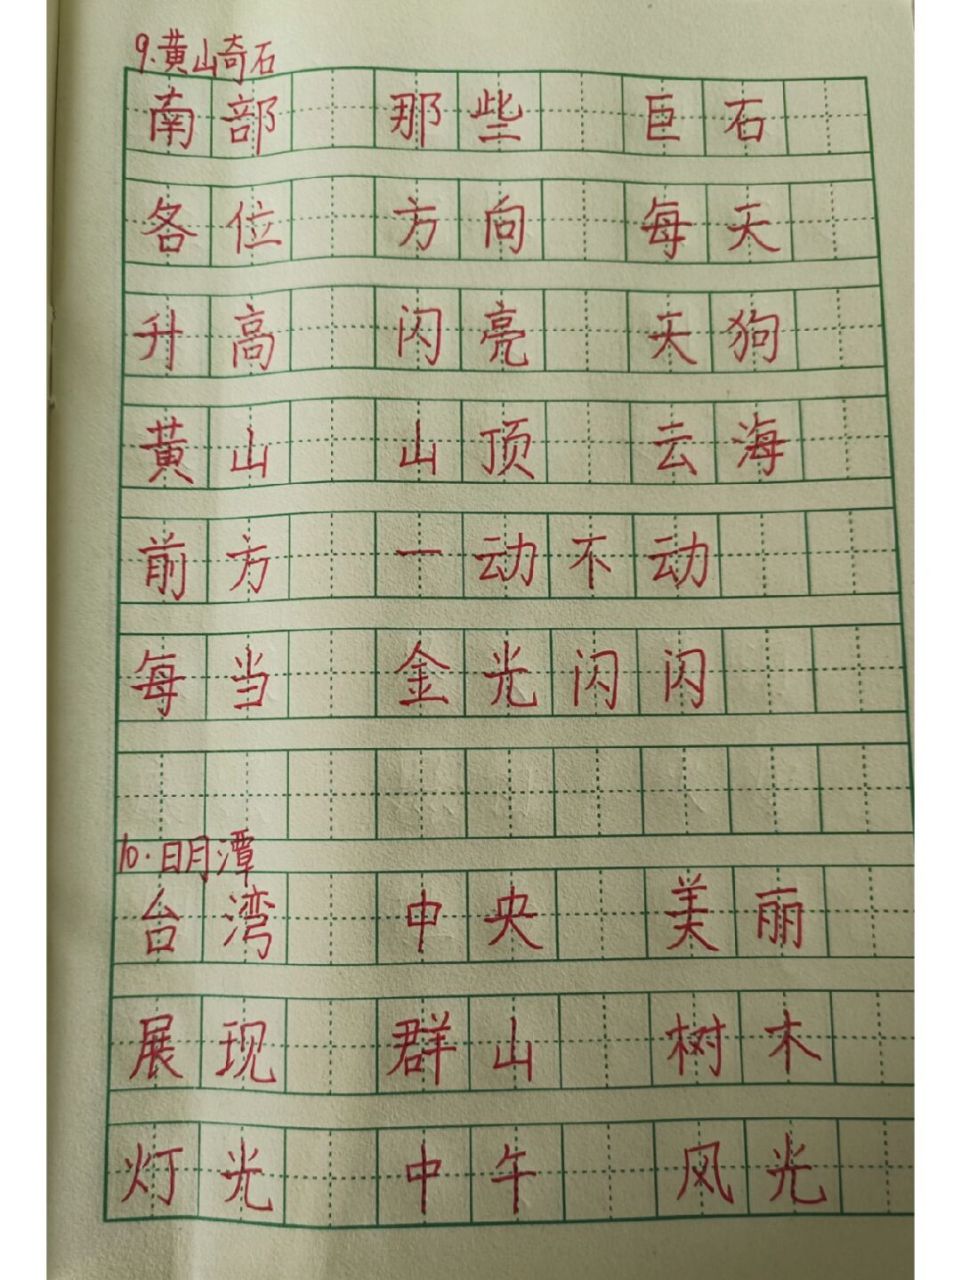 9.黄山奇石
南部 那些 巨石
各位 方向 每天
升高 闪亮 天狗
黄山 山顶 云海
前方 一动不动
每当 金光闪闪
10.日月潭
台湾 中央 美丽
展现 群山 树木
灯光 中午 风光